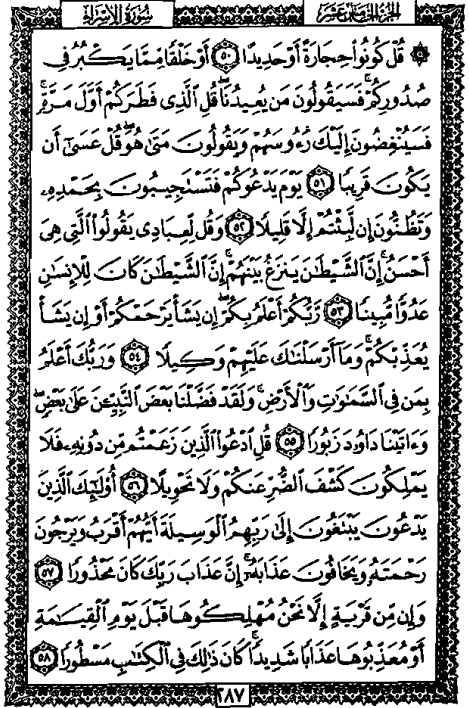 الجزء الخامس عشر سورة الإسراء
۞ قُلْ كُونُوا۟ حِجَارَةً أَوْ حَدِيدًا ٥٠ أَوْ خَلْقًا مِّمَّا يَكْبُرُ فِى
صُدُورِكُمْ ۚ فَسَيَقُولُونَ مَن يُعِيدُنَا ۖ قُلِ ٱلَّذِى فَطَرَكُمْ أَوَّلَ مَرَّةٍ ۚ
فَسَيُنْغِضُونَ إِلَيْكَ رُءُوسَهُمْ وَيَقُولُونَ مَتَىٰ هُوَ ۖ قُلْ عَسَىٰٓ أَن
يَكُونَ قَرِيبًا ٥١ يَوْمَ يَدْعُوكُمْ فَتَسْتَجِيبُونَ بِحَمْدِهِۦ
وَتَظُنُّونَ إِن لَّبِثْتُمْ إِلَّا قَلِيلًا ٥٢ وَقُل لِّعِبَادِى يَقُولُوا۟ ٱلَّتِى هِىَ
أَحْسَنُ ۚ إِنَّ ٱلشَّيْطَـٰنَ يَنزَغُ بَيْنَهُمْ ۚ إِنَّ ٱلشَّيْطَـٰنَ كَانَ لِلْإِنسَـٰنِ
عَدُوًّا مُّبِينًا ٥٣ رَّبُّكُمْ أَعْلَمُ بِكُمْ ۖ إِن يَشَأْ يَرْحَمْكُمْ أَوْ إِن يَشَأْ
يُعَذِّبْكُمْ ۚ وَمَآ أَرْسَلْنَـٰكَ عَلَيْهِمْ وَكِيلًا ٥٤ وَرَبُّكَ أَعْلَمُ
بِمَن فِى ٱلسَّمَـٰوَٰتِ وَٱلْأَرْضِ ۗ وَلَقَدْ فَضَّلْنَا بَعْضَ ٱلنَّبِيِّـۧنَ عَلَىٰ بَعْضٍ ۖ
وَءَاتَيْنَا دَاوُۥدَ زَبُورًا ٥٥ قُلِ ٱدْعُوا۟ ٱلَّذِينَ زَعَمْتُم مِّن دُونِهِۦ فَلَا
يَمْلِكُونَ كَشْفَ ٱلضُّرِّ عَنكُمْ وَلَا تَحْوِيلًا ٥٦ أُو۟لَـٰٓئِكَ ٱلَّذِينَ
يَدْعُونَ يَبْتَغُونَ إِلَىٰ رَبِّهِمُ ٱلْوَسِيلَةَ أَيُّهُمْ أَقْرَبُ وَيَرْجُونَ
رَحْمَتَهُۥ وَيَخَافُونَ عَذَابَهُۥٓ ۚ إِنَّ عَذَابَ رَبِّكَ كَانَ مَحْذُورًا ٥٧
وَإِن مِّن قَرْيَةٍ إِلَّا نَحْنُ مُهْلِكُوهَا قَبْلَ يَوْمِ ٱلْقِيَـٰمَةِ
أَوْ مُعَذِّبُوهَا عَذَابًا شَدِيدًا ۚ كَانَ ذَٰلِكَ فِى ٱلْكِتَـٰبِ مَسْطُورًا ٥٨
٢٨٧